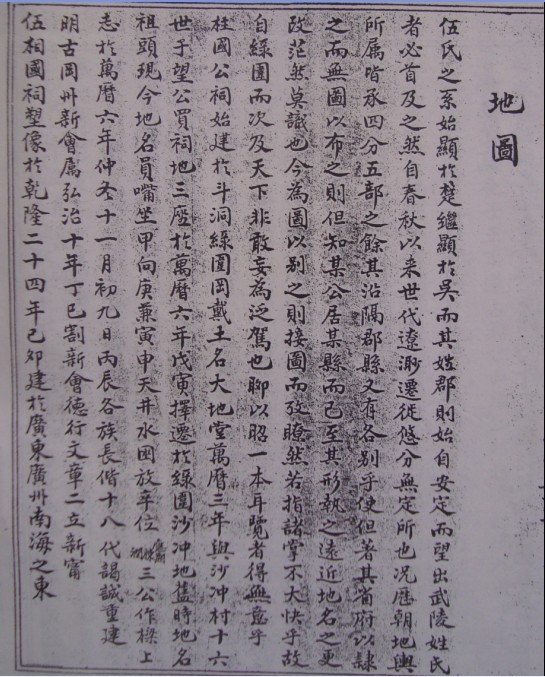 地圖
伍氏之系始顯於楚繼顯於吳而其姓郡則始自安定而望出武陵姓氏
者必首及之然自春秋以来世代遼渺遷徙悠分無定所也况歷朝地輿
所属皆承四分五部之餘其沿隔郡縣又有各别乎使但著其省府以隸
之而無圖以布之則但知某公居某縣而已至其形執之遠近地名之更
改茫然莫識也今為圖以别之則接圖而攷瞭然若指諸掌不大快乎故
自綠圍而次及天下非敢妄為泛駕也聊以昭一本耳覽者得無意乎
柱國公祠始建於斗洞綠圍岡戴土名大地堂萬曆三年與沙冲村十六
世于望公買祠地三座於萬曆六年戊寅擇遷於綠圍沙冲地舊時地名
祖頭現今地名員嘴坐甲向庚兼寅申天井水囡放辛位三公作樑上
志於萬曆六年仲冬十一月初九日丙辰各族長偕十八代謁誠重建
明古岡州新會属弘治十年丁巳割新會德行文章二立新甯
伍相國祠塑像於乾隆二十四年己卯建於廣東廣州南海之東